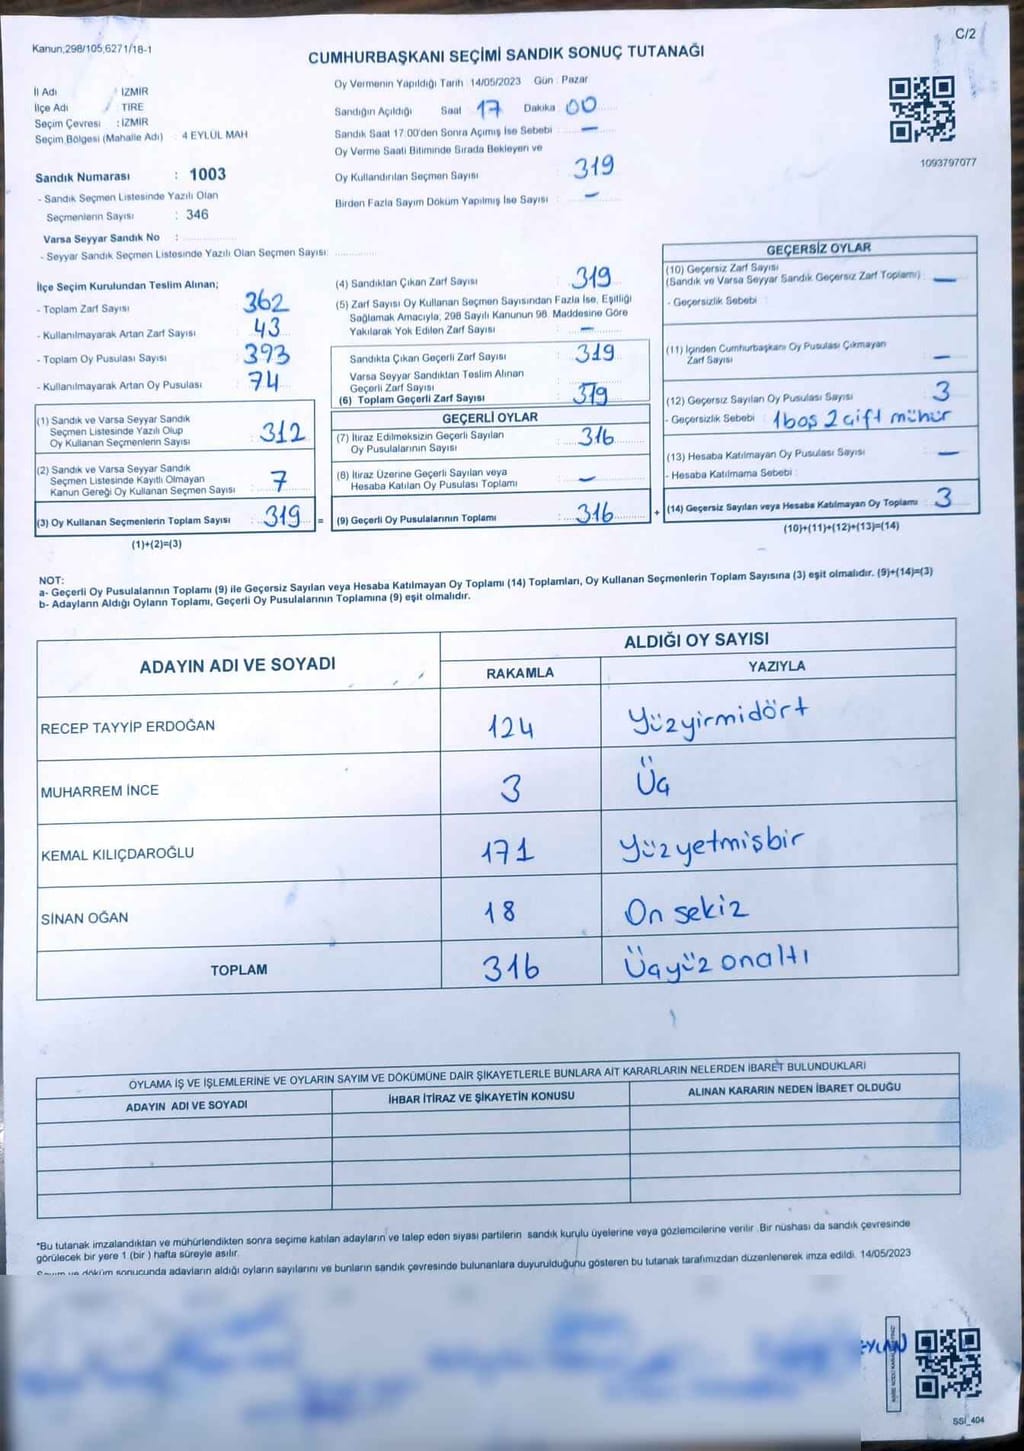 Kanun,298/105,6271/18-1
C/2
CUMHURBAŞKANI SEÇİMİ SANDIK SONUÇ TUTANAĞI
İl Adı : İZMİR
İlçe Adı : TİRE
Seçim Çevresi : İZMİR
Seçim Bölgesi (Mahalle Adı) : 4 EYLÜL MAH
Sandık Numarası : 1003
- Sandık Seçmen Listesinde Yazılı Olan
Seçmenlerin Sayısı : 346
Varsa Seyyar Sandık No :
- Seyyar Sandık Seçmen Listesinde Yazılı Olan Seçmen Sayısı:
Oy Vermenin Yapıldığı Tarih 14/05/2023 Gün Pazar
Sandığın Açıldığı Saat 17 Dakika 00
Sandık Saat 17:00'den Sonra Açımış İse Sebebi : —
Oy Verme Saati Bitiminde Sırada Bekleyen ve
Oy Kullandırılan Seçmen Sayısı 319
Birden Fazla Sayım Döküm Yapılmış İse Sayısı : —
1093797077
İlçe Seçim Kurulundan Teslim Alınan;
- Toplam Zarf Sayısı : 362
- Kullanılmayarak Artan Zarf Sayısı : 43
- Toplam Oy Pusulası Sayısı : 393
- Kullanılmayarak Artan Oy Pusulası : 74
(1) Sandık ve Varsa Seyyar Sandık
Seçmen Listesinde Yazılı Olup
Oy Kullanan Seçmenlerin Sayısı : 312
(2) Sandık ve Varsa Seyyar Sandık
Seçmen Listesinde Kayıtlı Olmayan
Kanun Gereği Oy Kullanan Seçmen Sayısı : 7
(3) Oy Kullanan Seçmenlerin Toplam Sayısı : 319 =
(1)+(2)=(3)
(4) Sandıktan Çıkan Zarf Sayısı : 319
(5) Zarf Sayısı Oy Kullanan Seçmen Sayısından Fazla İse, Eşitliği
Sağlamak Amacıyla, 298 Sayılı Kanunun 98. Maddesine Göre
Yakılarak Yok Edilen Zarf Sayısı : —
Sandıkta Çıkan Geçerli Zarf Sayısı : 319
Varsa Seyyar Sandıktan Teslim Alınan
Geçerli Zarf Sayısı
(6) Toplam Geçerli Zarf Sayısı : 319
GEÇERLİ OYLAR
(7) İtiraz Edilmeksizin Geçerli Sayılan
Oy Pusulalarının Sayısı : 316
(8) İtiraz Üzerine Geçerli Sayılan veya
Hesaba Katılan Oy Pusulası Toplamı : —
(9) Geçerli Oy Pusulalarının Toplamı : 316 +
GEÇERSİZ OYLAR
(10) Geçersiz Zarf Sayısı
(Sandık ve Varsa Seyyar Sandık Geçersiz Zarf Toplamı) —
- Geçersizlik Sebebi :
(11) İçinden Cumhurbaşkanı Oy Pusulası Çıkmayan
Zarf Sayısı —
(12) Geçersiz Sayılan Oy Pusulası Sayısı 3
- Geçersizlik Sebebi : 1boş 2 çift mühür
(13) Hesaba Katılmayan Oy Pusulası Sayısı —
- Hesaba Katılmama Sebebi
(14) Geçersiz Sayılan veya Hesaba Katılmayan Oy Toplamı : 3
(10)+(11)+(12)+(13)=(14)
NOT:
a- Geçerli Oy Pusulalarının Toplamı (9) ile Geçersiz Sayılan veya Hesaba Katılmayan Oy Toplamı (14) Toplamları, Oy Kullanan Seçmenlerin Toplam Sayısına (3) eşit olmalıdır. (9)+(14)=(3)
b- Adayların Aldığı Oyların Toplamı, Geçerli Oy Pusulalarının Toplamına (9) eşit olmalıdır.
ADAYIN ADI VE SOYADI
ALDIĞI OY SAYISI
RAKAMLA YAZIYLA
RECEP TAYYİP ERDOĞAN 124 Yüzyirmidört
MUHARREM İNCE 3 Üç
KEMAL KILIÇDAROĞLU 171 Yüzyetmişbir
SİNAN OĞAN 18 On sekiz
TOPLAM 316 Üçyüz onaltı
OYLAMA İŞ VE İŞLEMLERİNE VE OYLARIN SAYIM VE DÖKÜMÜNE DAİR ŞİKAYETLERLE BUNLARA AİT KARARLARIN NELERDEN İBARET BULUNDUKLARI
ADAYIN ADI VE SOYADI İHBAR İTİRAZ VE ŞİKAYETİN KONUSU ALINAN KARARIN NEDEN İBARET OLDUĞU
*Bu tutanak imzalandıktan ve mühürlendikten sonra seçime katılan adayların ve talep eden siyasi partilerin sandık kurulu üyelerine veya gözlemcilerine verilir Bir nüshası da sandık çevresinde
görülecek bir yere 1 (bir ) hafta süreyle asılır.
Sayım ve döküm sonucunda adayların aldığı oyların sayılarını ve bunların sandık çevresinde bulunanlara duyurulduğunu gösteren bu tutanak tarafımızdan düzenlenerek imza edildi. 14/05/2023
SSİ_404